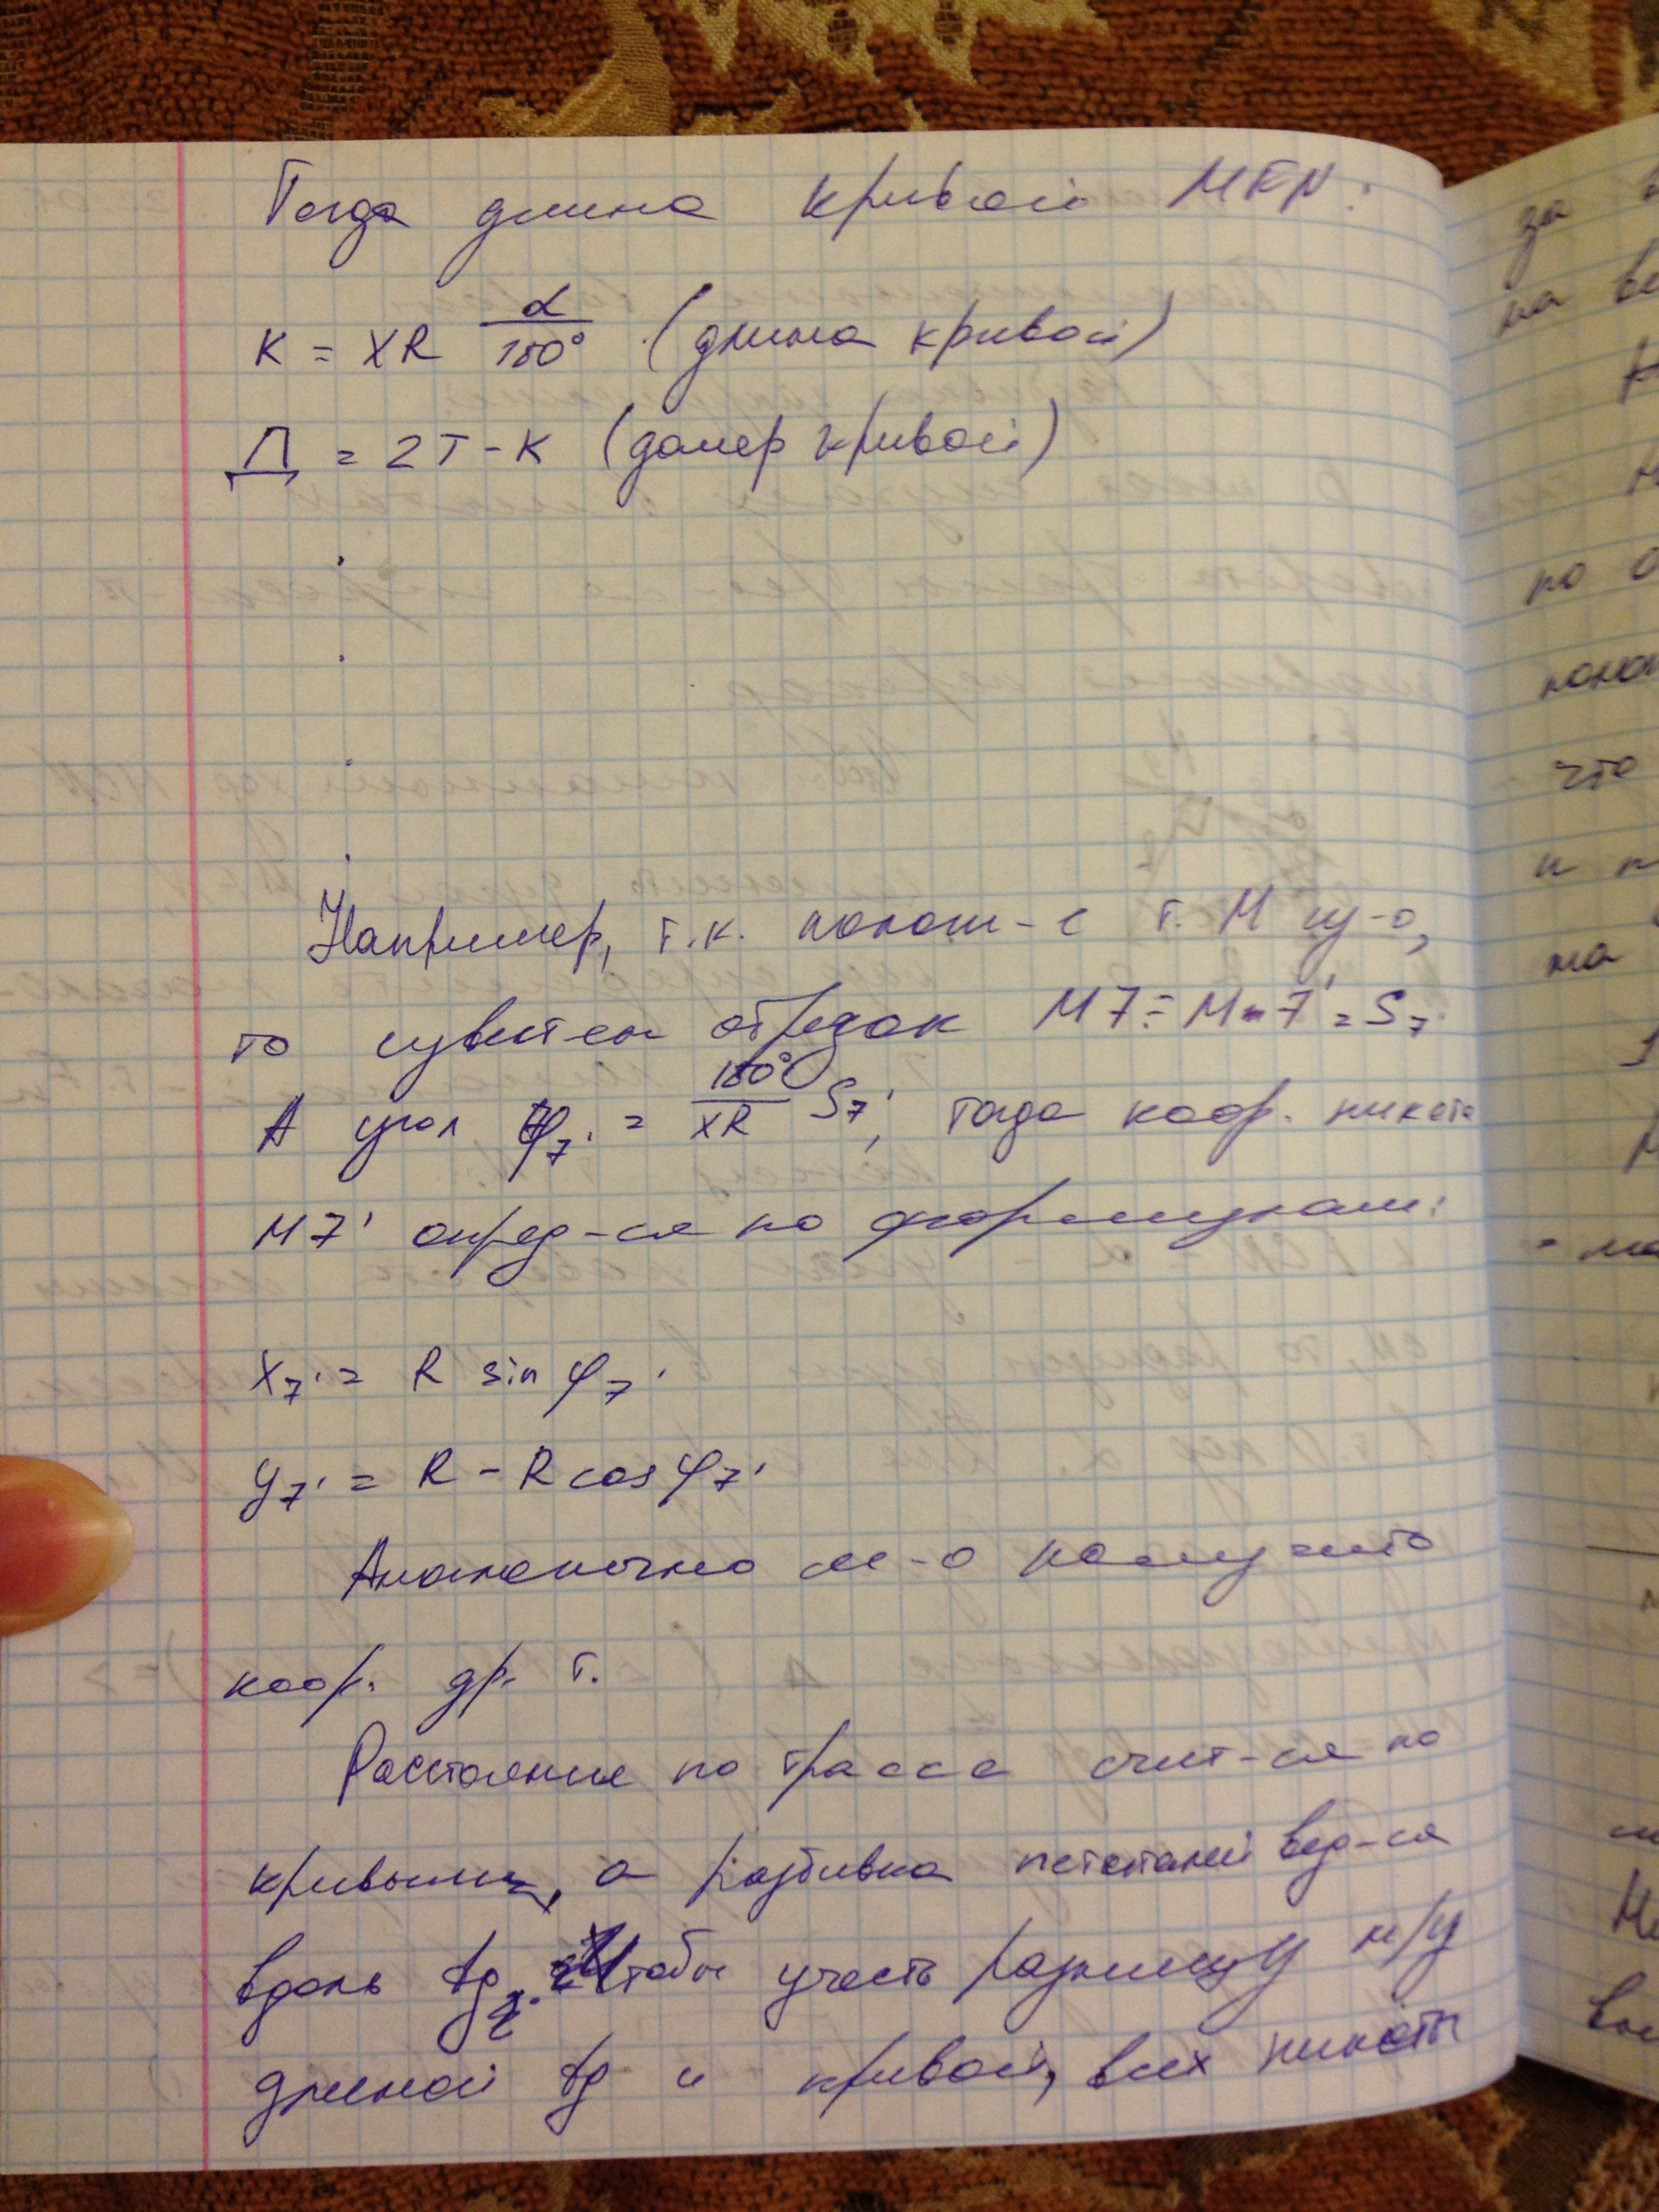 Тогда длина кривой MEN:
K = XR α/180° (длина кривой)
Д = 2T - K (домер кривой)
Например, т.к. полож-е т. М из-о,
то известен отрезок M7 = M-7' = S7'
А угол φ7' = 180°/XR S7', тогда коор. пикета
M7' опред-ся по формулам:
X7' = R sin φ7'
y7' = R - R cos φ7'
Аналогично м-о получить
коор. др. т.
Расстояние по трассе счит-ся по
кривым, а разбивка вед-ся
вдоль tg. Чтобы учесть разницу м/у
длиной tg и кривой, всех пикеты
за
на
по
что
и
на